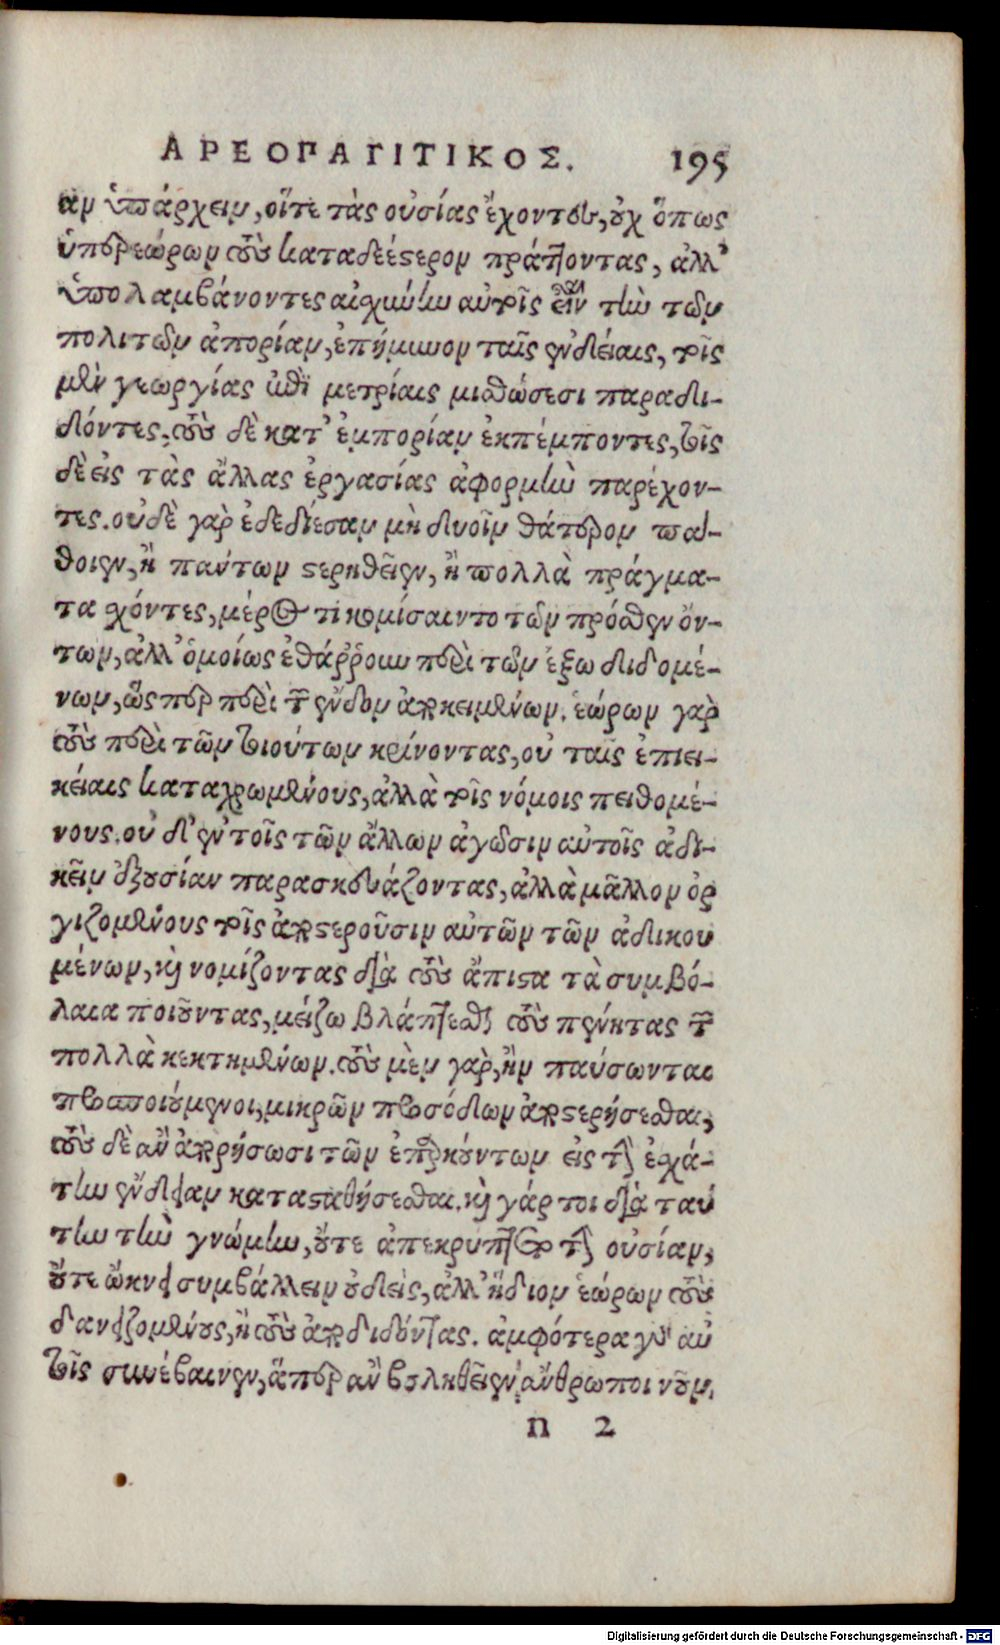 ΑΡΕΟΠΑΓΙΤΙΚΟΣ. 195
αν ὑπάρχειν, οἵτε τὰς οὐσίας ἔχοντες, οὐχ ὅπως
ὑπερεώρων τοὺς καταδεέστερον πράττοντας, ἀλλ'
ὑπολαμβάνοντες αἰσχύνην αὑτοῖς εἶναι τὴν τῶν
πολιτῶν ἀπορίαν, ἐπήμυνον ταῖς ἐνδείαις, τοῖς
μὲν γεωργίας ἐπὶ μετρίαις μισθώσεσι παραδι-
δόντες, τοὺς δὲ κατ' ἐμπορίαν ἐκπέμποντες, τοῖς
δὲ εἰς τὰς ἄλλας ἐργασίας ἀφορμὴν παρέχον-
τες. οὐδὲ γὰρ ἐδεδίεσαν μὴ δυοῖν θάτερον πά-
θοιεν, ἢ πάντων στερηθεῖεν, ἢ πολλὰ πράγμα-
τα σχόντες, μέρος τι κομίσαιντο τῶν πρόσθεν ὄν-
των, ἀλλ' ὁμοίως ἐθάῤῥουν περὶ τῶν ἔξω διδομέ-
νων, ὥσπερ περὶ τῶν ἔνδον ἀποκειμένων. ἑώρων γὰρ
τοὺς περὶ τῶν τοιούτων κρίνοντας, οὐ ταῖς ἐπιει-
κείαις καταχρωμένους, ἀλλὰ τοῖς νόμοις πειθομέ-
νους. οὐδ' ἐν τοῖς τῶν ἄλλων ἀγῶσιν αὑτοῖς ἀδι-
κεῖν ἐξουσίαν παρασκευάζοντας, ἀλλὰ μᾶλλον ὀρ
γιζομένους τοῖς ἀποστεροῦσιν αὐτῶν τῶν ἀδικου
μένων, καὶ νομίζοντας διὰ τοὺς ἄπιστα τὰ συμβό-
λαια ποιοῦντας, μείζω βλάπτεσθαι τοὺς πένητας τῶν
πολλὰ κεκτημένων. τοὺς μὲν γὰρ, ἢν παύσωνται
προϊέμενοι, μικρῶν προσόδων ἀποστερήσεσθαι,
τοὺς δὲ ἂν ἀπορήσωσι τῶν ἐπαρκούντων εἰς τὴν ἐσχά-
την ἔνδειαν καταστήσεσθαι. καὶ γάρ τοι διὰ ταύ
την τὴν γνώμην, οὔτε ἀπεκρύπτετο τὴν οὐσίαν,
οὔτε ὤκνει συμβάλλειν οὐδεὶς, ἀλλ' ἥδιον ἑώρων τοὺς
δανειζομένους, ἢ τοὺς ἀποδιδόντας. ἀμφότερα γὰρ αὐ
τοῖς συνέβαινεν, ἅπερ ἂν βουληθεῖεν ἄνθρωποι νοῦν
n 2
Digitalisierung gefördert durch die Deutsche Forschungsgemeinschaft - DFG